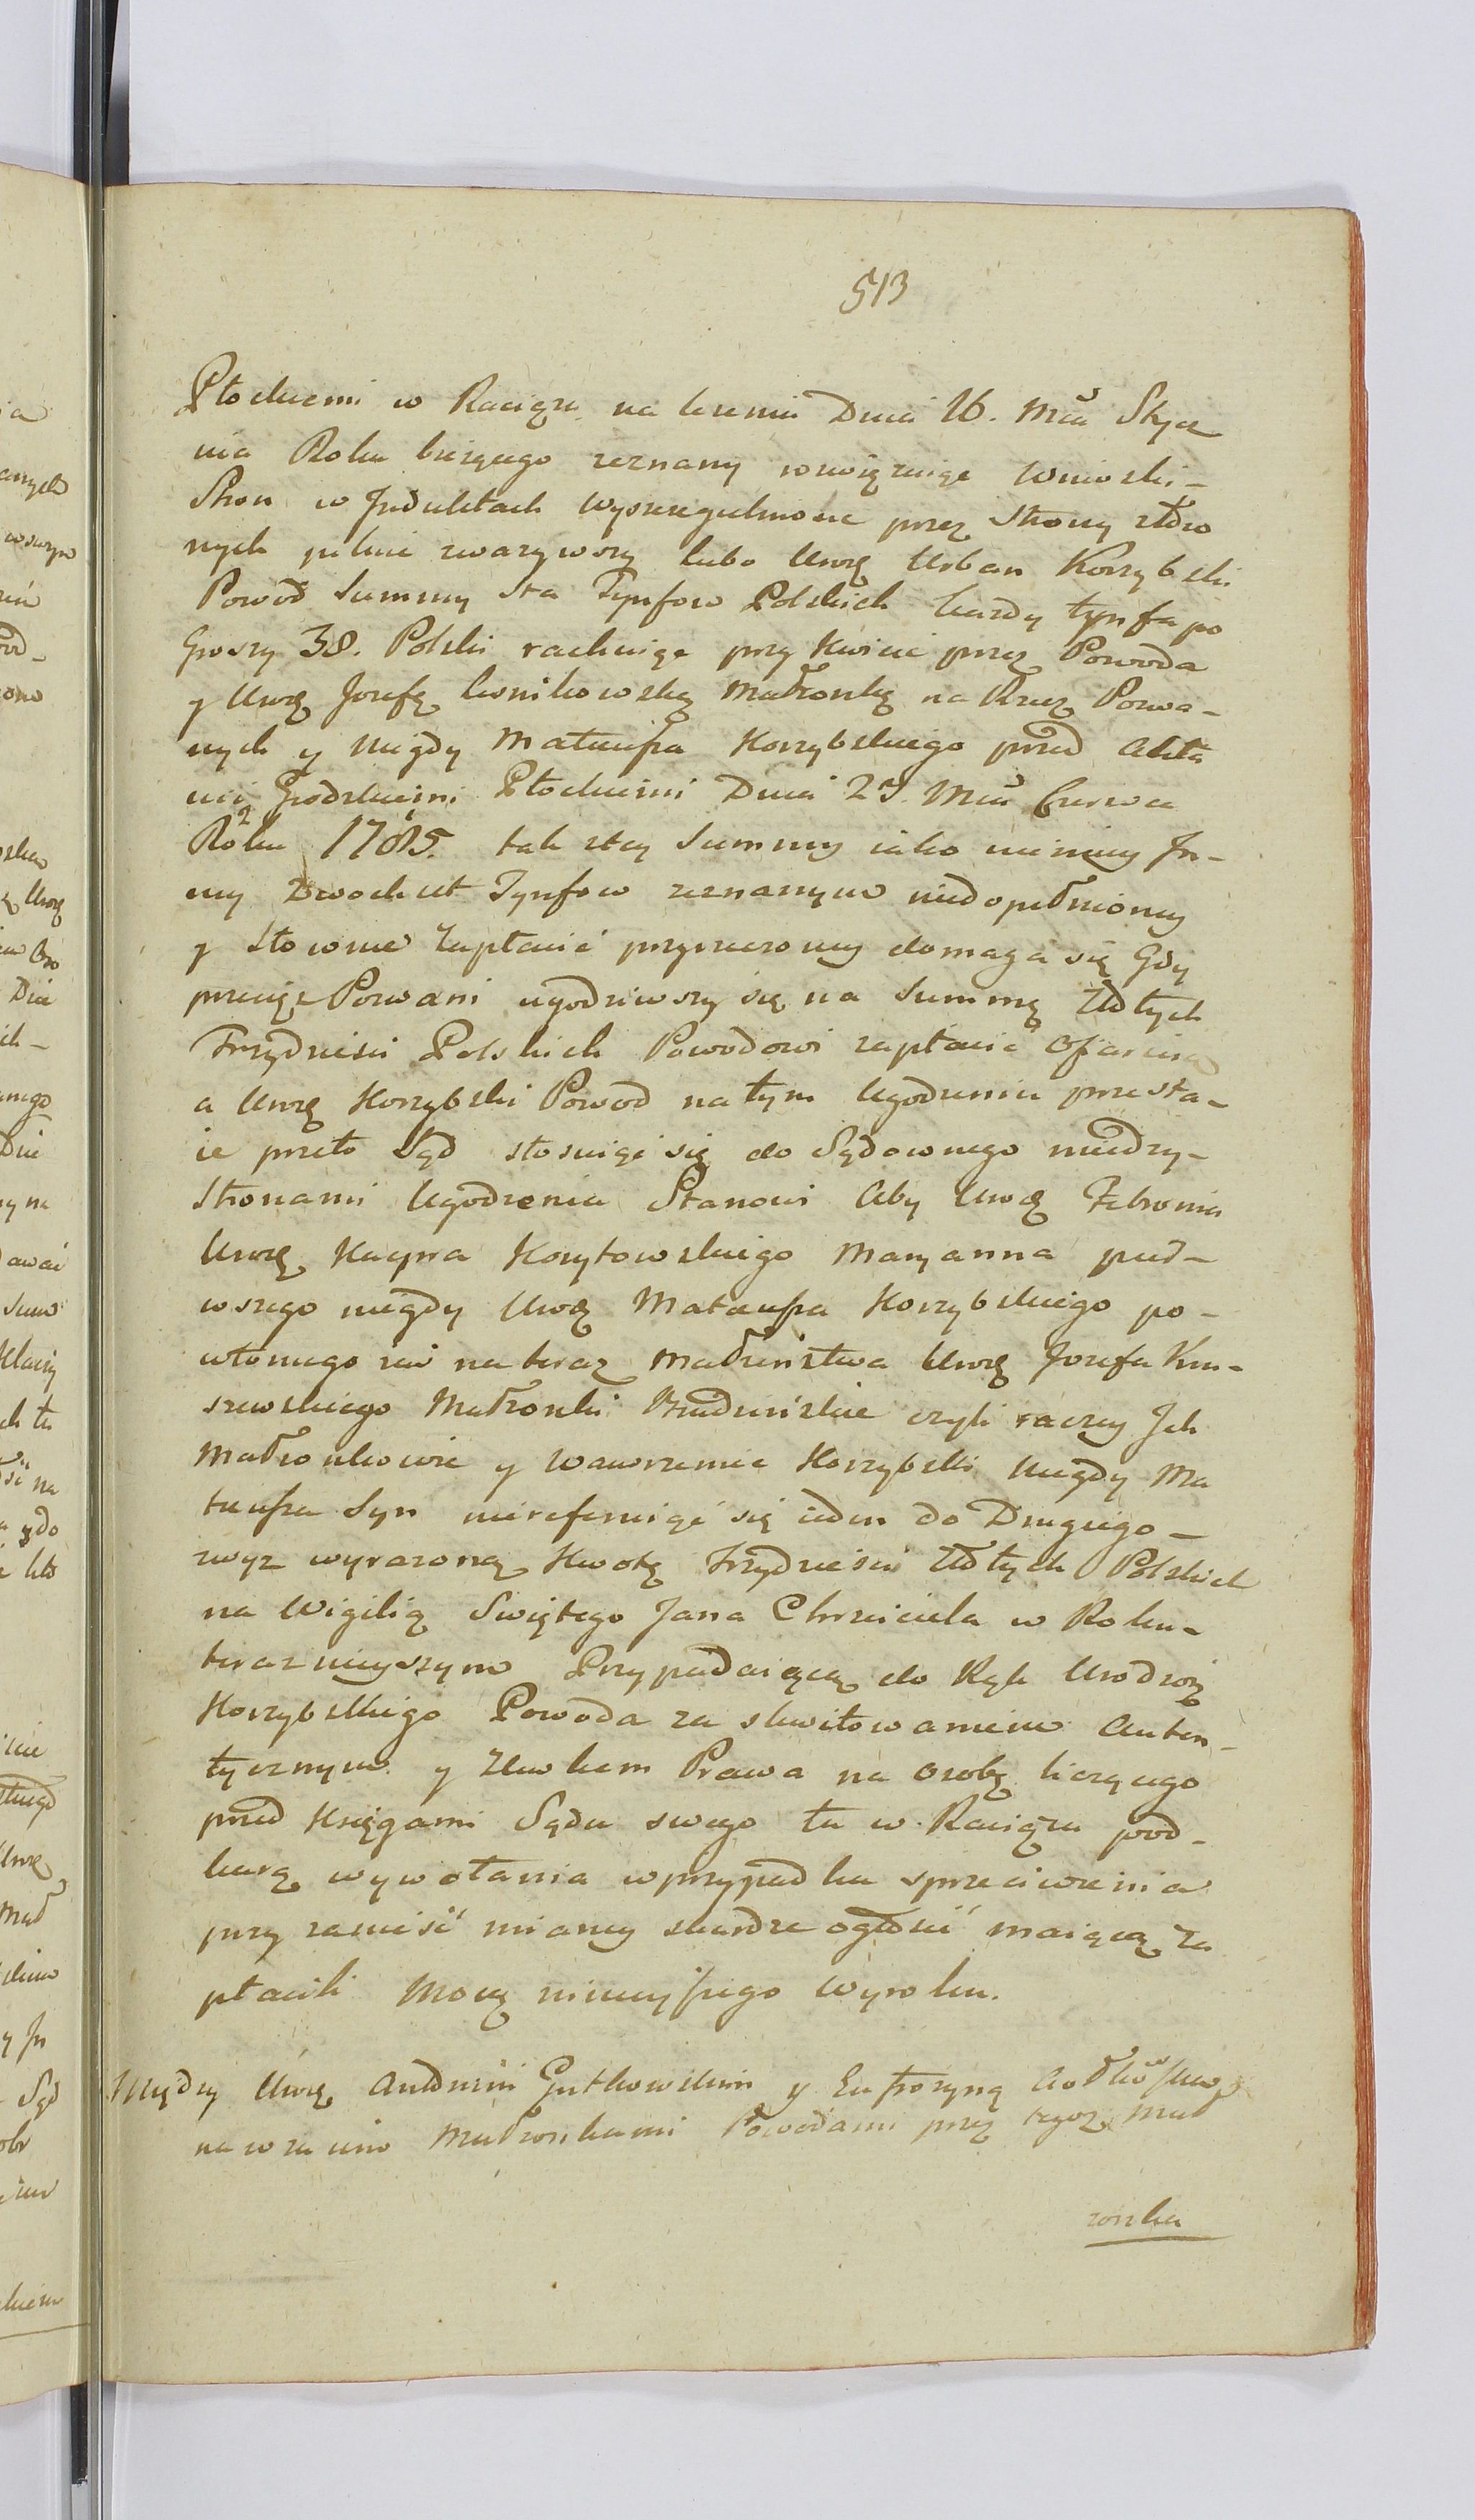 513
Płockiemi w Raciążu na Dnia 16. Mca Stycz
nia Roku bieżącego zeznany rozwiązuiąc Wnioski-
Stron w Jnduktach wyszczegulnione przez Strony
nych pilnie zwarzywszy lubo Urog Urban Korzybski
Powód Summy Sta Tynfow Polskich każdy tynf a po
Groszy 38. Polski rachuiąc przy Kwicie przez Powoda
y Urog Jozefę Małżonkę na Rzecz Pozwa-
nych y niegdy Mateusza Korzybskiego przed Akta
mi Grodzkiemi Płockiemi Dnia 25. Mca Czerwca
Roku 1785. tak stey Summy iako nieniey Jn-
ney Dwochset Tynfow zeznanym niedopełnioney
y Słownie Zapłacić przyrzeczoney domaga się Gdy
przecięz Pozwani ugodziwszy się na Summę Złłtych
Trzydzieści Polskich Powodowi zapłacić Ofiaruią
a Urog Korzybski Powod na tym Ugodzeniu przesta-
ie przeto Sąd stosuiąc się do Sądownego miedzy-
Stronami Ugodzenia Stanowi Aby Urog Febronia
Urog Kacpra Koryłowskiego Maryanna pier-
wszego niegdy Urog Mateusza Korzybskiego po-
wtornego zaś na teraz Małżeństwa Urog Jozefa Kru-
szewskiego Małżonki czyli raczey Jch
Małżonkowie y Wawrzeniec Korzybski Niegdy Ma
teusza Syn niereferuiąc się ieden do Drugiego-
zwyz wyrazoną Kwotę Trzydzieści Złłtych Polskich
na Wigilią Swiętego Jana Chrzciciela w Roku-
teraznieyszym Przypadaiącą do Rąk Urodzog
Korzybskiego Powoda za skwitowaniem Auten-
tycznym y Zlewkem Prawa na Osobę liczącego
przed Księgami Sądu swego tu w Raciążu pod-
karą wywołania w przypadku sprzeciwienia
przy zanieść mianey skardze ogłosić maiącą za
płacili Mocą ninieyszego Wyroku.
Między Urog Antonim Gutkowskim y Eufrozyną
Małżonkami Powodami przez tegoz Mał
zonka